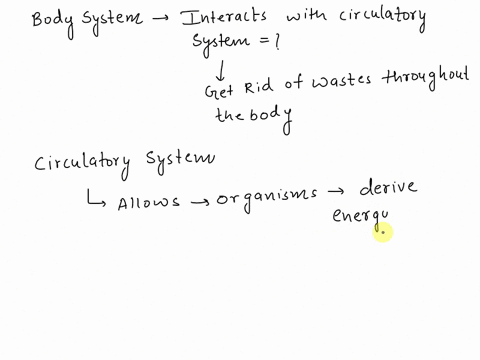 Body System → Interacts with circulatory
System = ?
↓
Get Rid of wastes throughout
the body
Circulatory System
↳ Allows → organisms → derive
energy